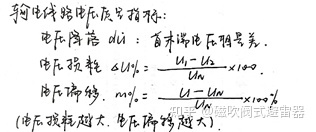 输电线路电压质量指标:
电压降落 dU: 首末端电压相量差.
电压损耗 ΔU% = (U₁-U₂)/U_N ×100.
电压偏移. m% = (U-U_N)/U_N ×100%
(电压损耗越大. 电压偏移越大).
知乎 @磁吹阀式避雷器